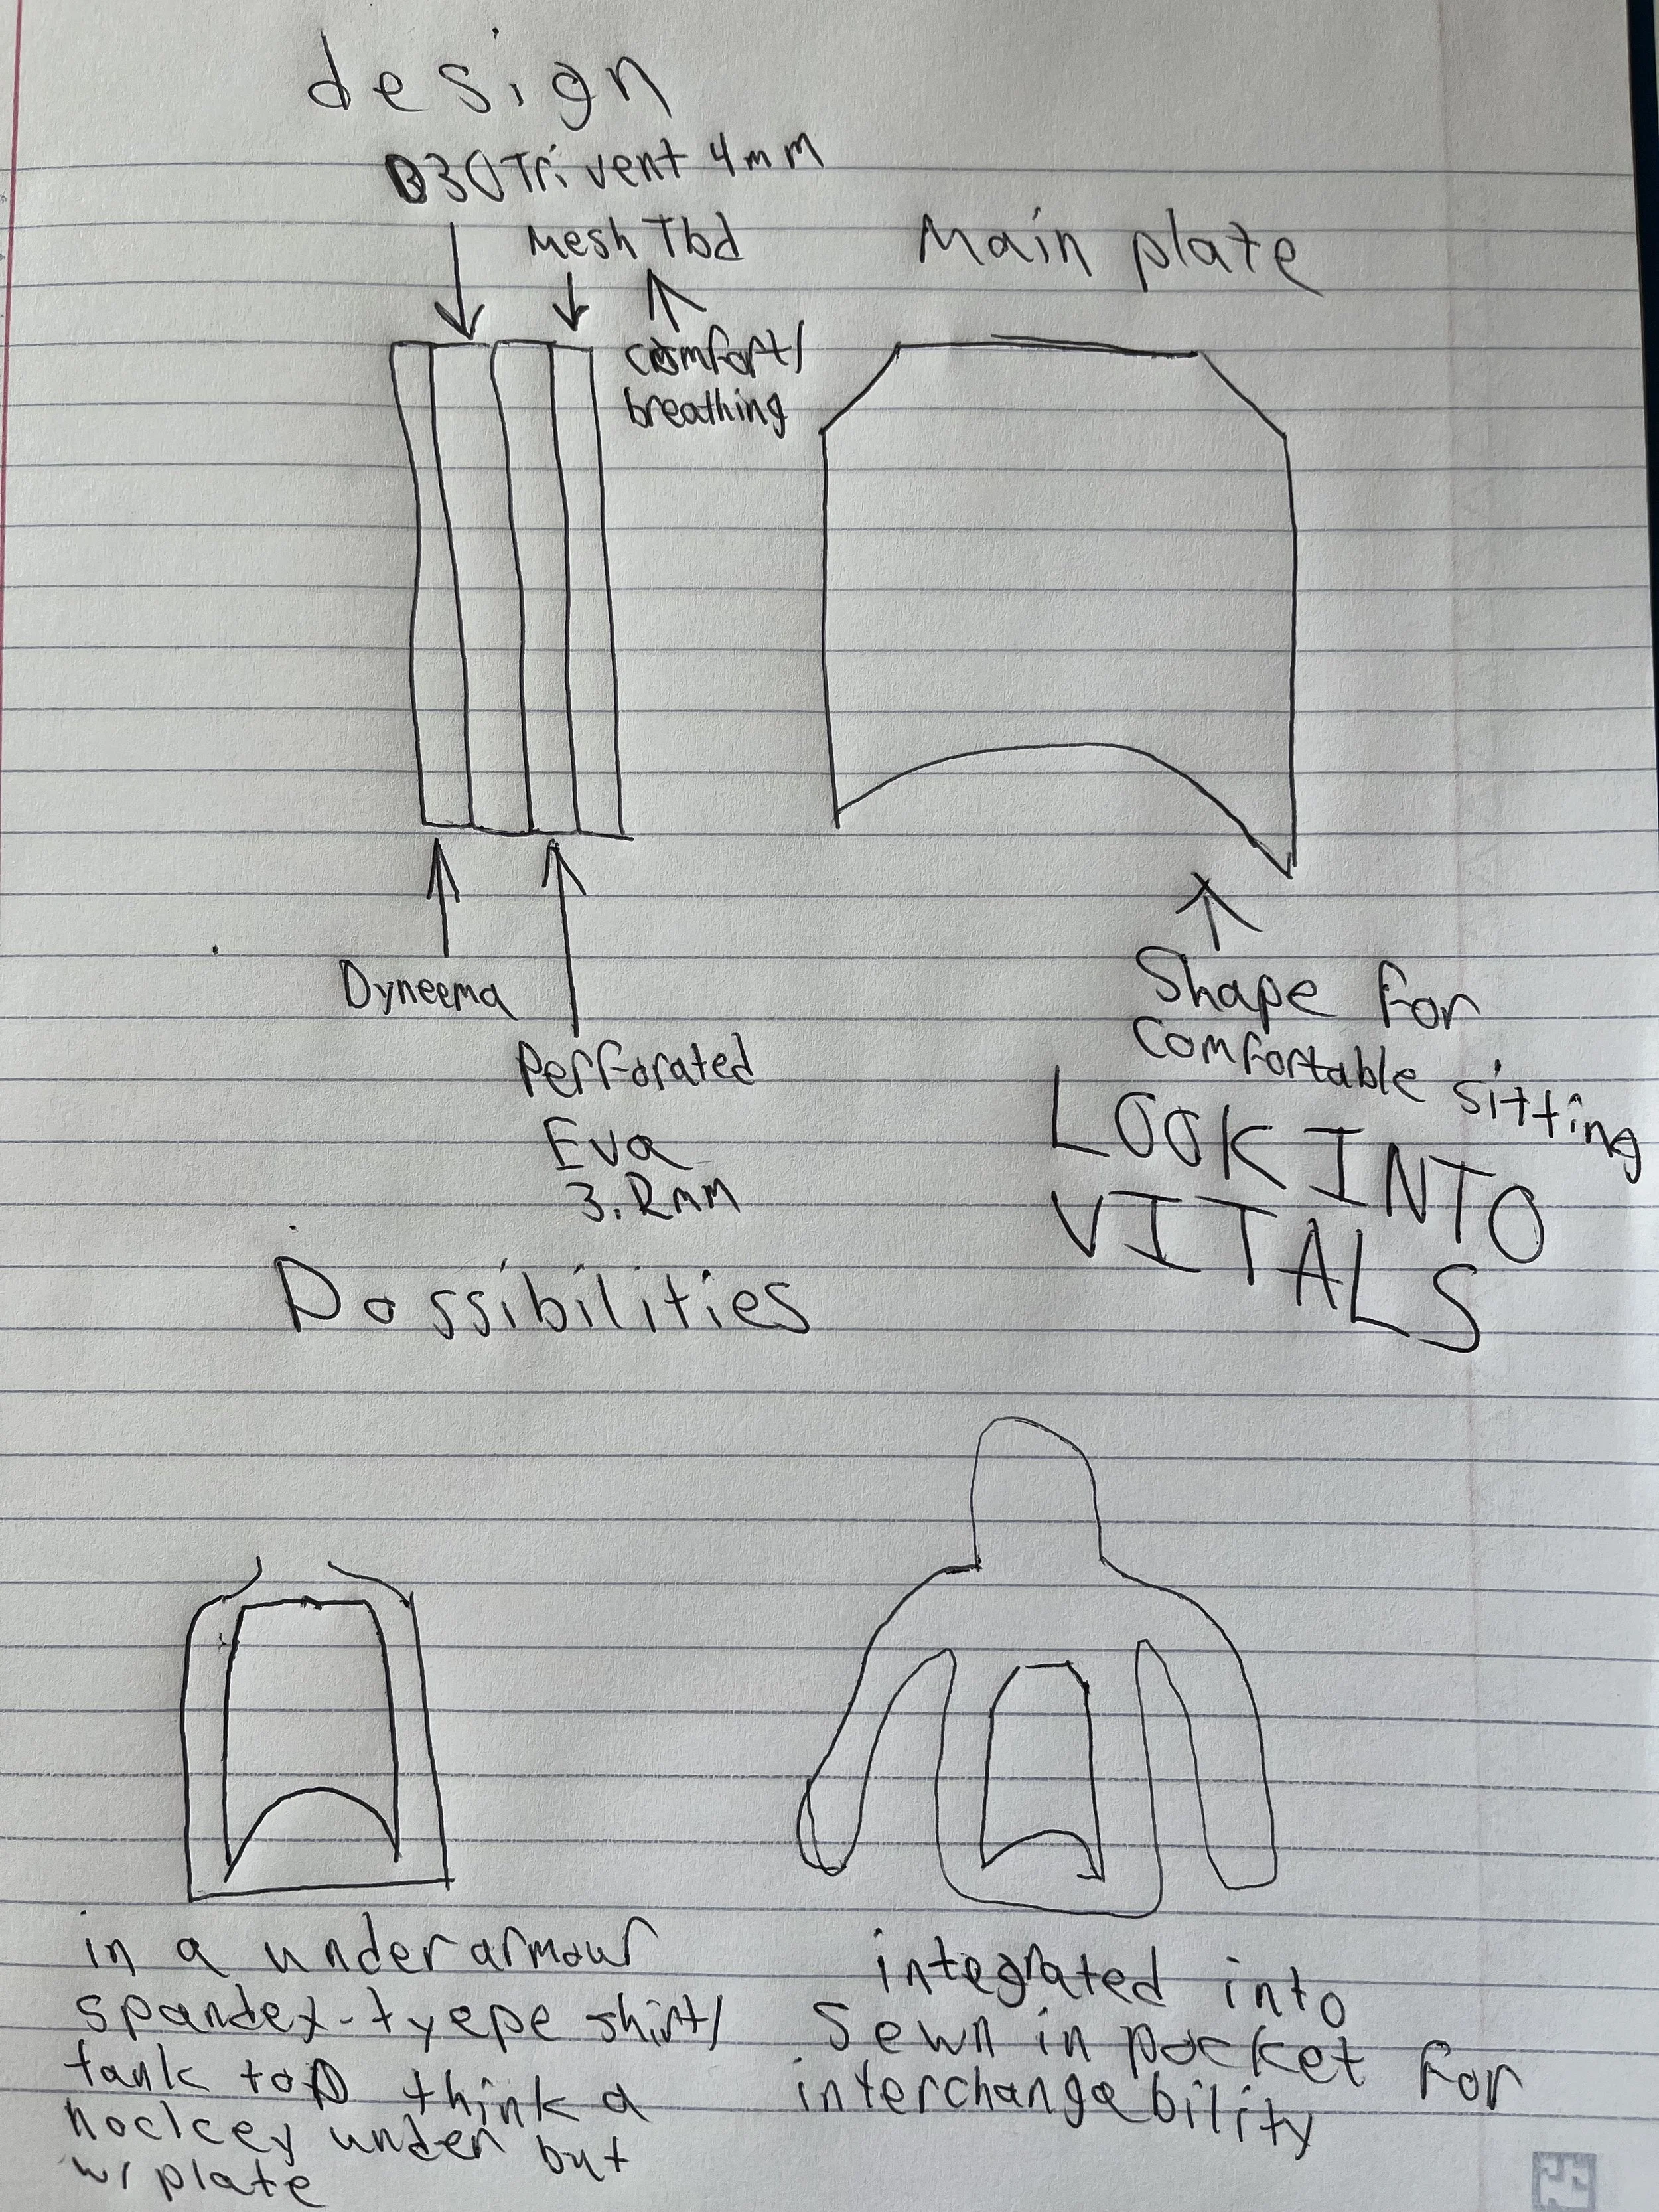 design
D3O Trivent 4mm
Mesh Tbd
Main plate
comfort/
breathing
Dyneema
Perforated
Eva
3.2mm
Shape for
comfortable sitting
LOOK INTO
VITALS
Possibilities
in a under armour
spandex-tyepe shirt/
tank top think a
hockey under but
w/ plate
integrated into
sewn in pocket for
interchangability